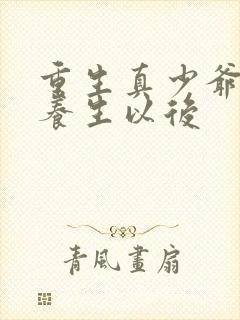 重生真少爷
养生以後
青風畫扇